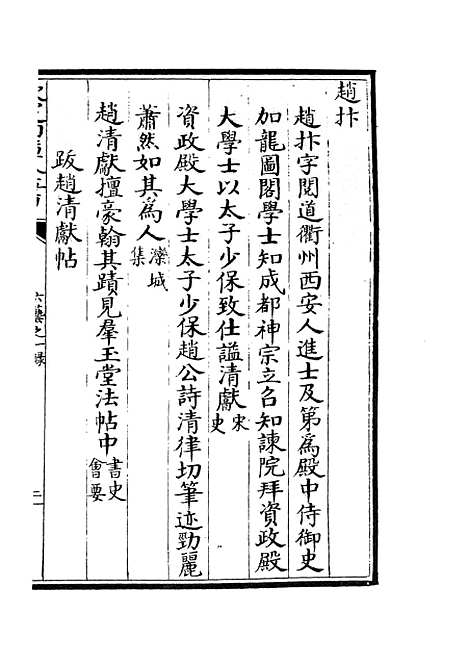 趙抃
趙抃字閱道衢州西安人進士及第為殿中侍御史
加龍圖閣學士知成都神宗立召知諫院拜資政殿
大學士以太子少保致仕謚清獻宋史
資政殿大學士太子少保趙公詩清律切筆迹勁麗
蕭然如其為人灤城集
趙清獻擅豪翰其蹟見羣玉堂法帖中書史會要
跋趙清獻帖
六藝之一錄
二